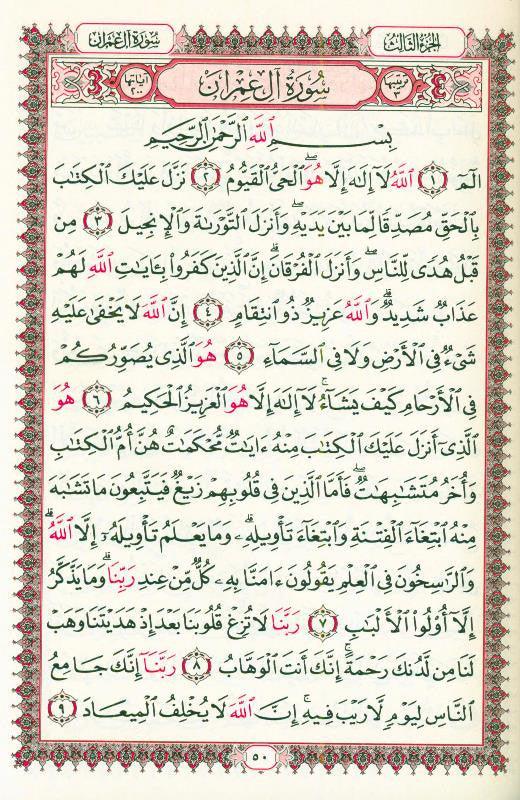 سورة آل عمران
الجزء الثالث
آياتها ٢٠٠
سُورَةُ آلِ عِمْرَانَ
ترتيبها ٣
بِسْمِ ٱللَّهِ ٱلرَّحْمَٰنِ ٱلرَّحِيمِ
الٓمٓ ﴿١﴾ ٱللَّهُ لَآ إِلَٰهَ إِلَّا هُوَ ۖ ٱلْحَىُّ ٱلْقَيُّومُ ﴿٢﴾ نَزَّلَ عَلَيْكَ ٱلْكِتَٰبَ
بِٱلْحَقِّ مُصَدِّقًا لِّمَا بَيْنَ يَدَيْهِ ۖ وَأَنزَلَ ٱلتَّوْرَىٰةَ وَٱلْإِنجِيلَ ﴿٣﴾ مِن
قَبْلُ هُدًى لِّلنَّاسِ ۖ وَأَنزَلَ ٱلْفُرْقَانَ ۗ إِنَّ ٱلَّذِينَ كَفَرُوا۟ بِـَٔايَٰتِ ٱللَّهِ لَهُمْ
عَذَابٌ شَدِيدٌ ۗ وَٱللَّهُ عَزِيزٌ ذُو ٱنتِقَامٍ ﴿٤﴾ إِنَّ ٱللَّهَ لَا يَخْفَىٰ عَلَيْهِ
شَىْءٌ فِى ٱلْأَرْضِ وَلَا فِى ٱلسَّمَآءِ ﴿٥﴾ هُوَ ٱلَّذِى يُصَوِّرُكُمْ
فِى ٱلْأَرْحَامِ كَيْفَ يَشَآءُ ۚ لَآ إِلَٰهَ إِلَّا هُوَ ٱلْعَزِيزُ ٱلْحَكِيمُ ﴿٦﴾ هُوَ
ٱلَّذِىٓ أَنزَلَ عَلَيْكَ ٱلْكِتَٰبَ مِنْهُ ءَايَٰتٌ مُّحْكَمَٰتٌ هُنَّ أُمُّ ٱلْكِتَٰبِ
وَأُخَرُ مُتَشَٰبِهَٰتٌ ۖ فَأَمَّا ٱلَّذِينَ فِى قُلُوبِهِمْ زَيْغٌ فَيَتَّبِعُونَ مَا تَشَٰبَهَ
مِنْهُ ٱبْتِغَآءَ ٱلْفِتْنَةِ وَٱبْتِغَآءَ تَأْوِيلِهِۦ ۗ وَمَا يَعْلَمُ تَأْوِيلَهُۥٓ إِلَّا ٱللَّهُ ۗ
وَٱلرَّٰسِخُونَ فِى ٱلْعِلْمِ يَقُولُونَ ءَامَنَّا بِهِۦ كُلٌّ مِّنْ عِندِ رَبِّنَا ۗ وَمَا يَذَّكَّرُ
إِلَّآ أُو۟لُوا۟ ٱلْأَلْبَٰبِ ﴿٧﴾ رَبَّنَا لَا تُزِغْ قُلُوبَنَا بَعْدَ إِذْ هَدَيْتَنَا وَهَبْ
لَنَا مِن لَّدُنكَ رَحْمَةً ۚ إِنَّكَ أَنتَ ٱلْوَهَّابُ ﴿٨﴾ رَبَّنَآ إِنَّكَ جَامِعُ
ٱلنَّاسِ لِيَوْمٍ لَّا رَيْبَ فِيهِ ۚ إِنَّ ٱللَّهَ لَا يُخْلِفُ ٱلْمِيعَادَ ﴿٩﴾
٥٠